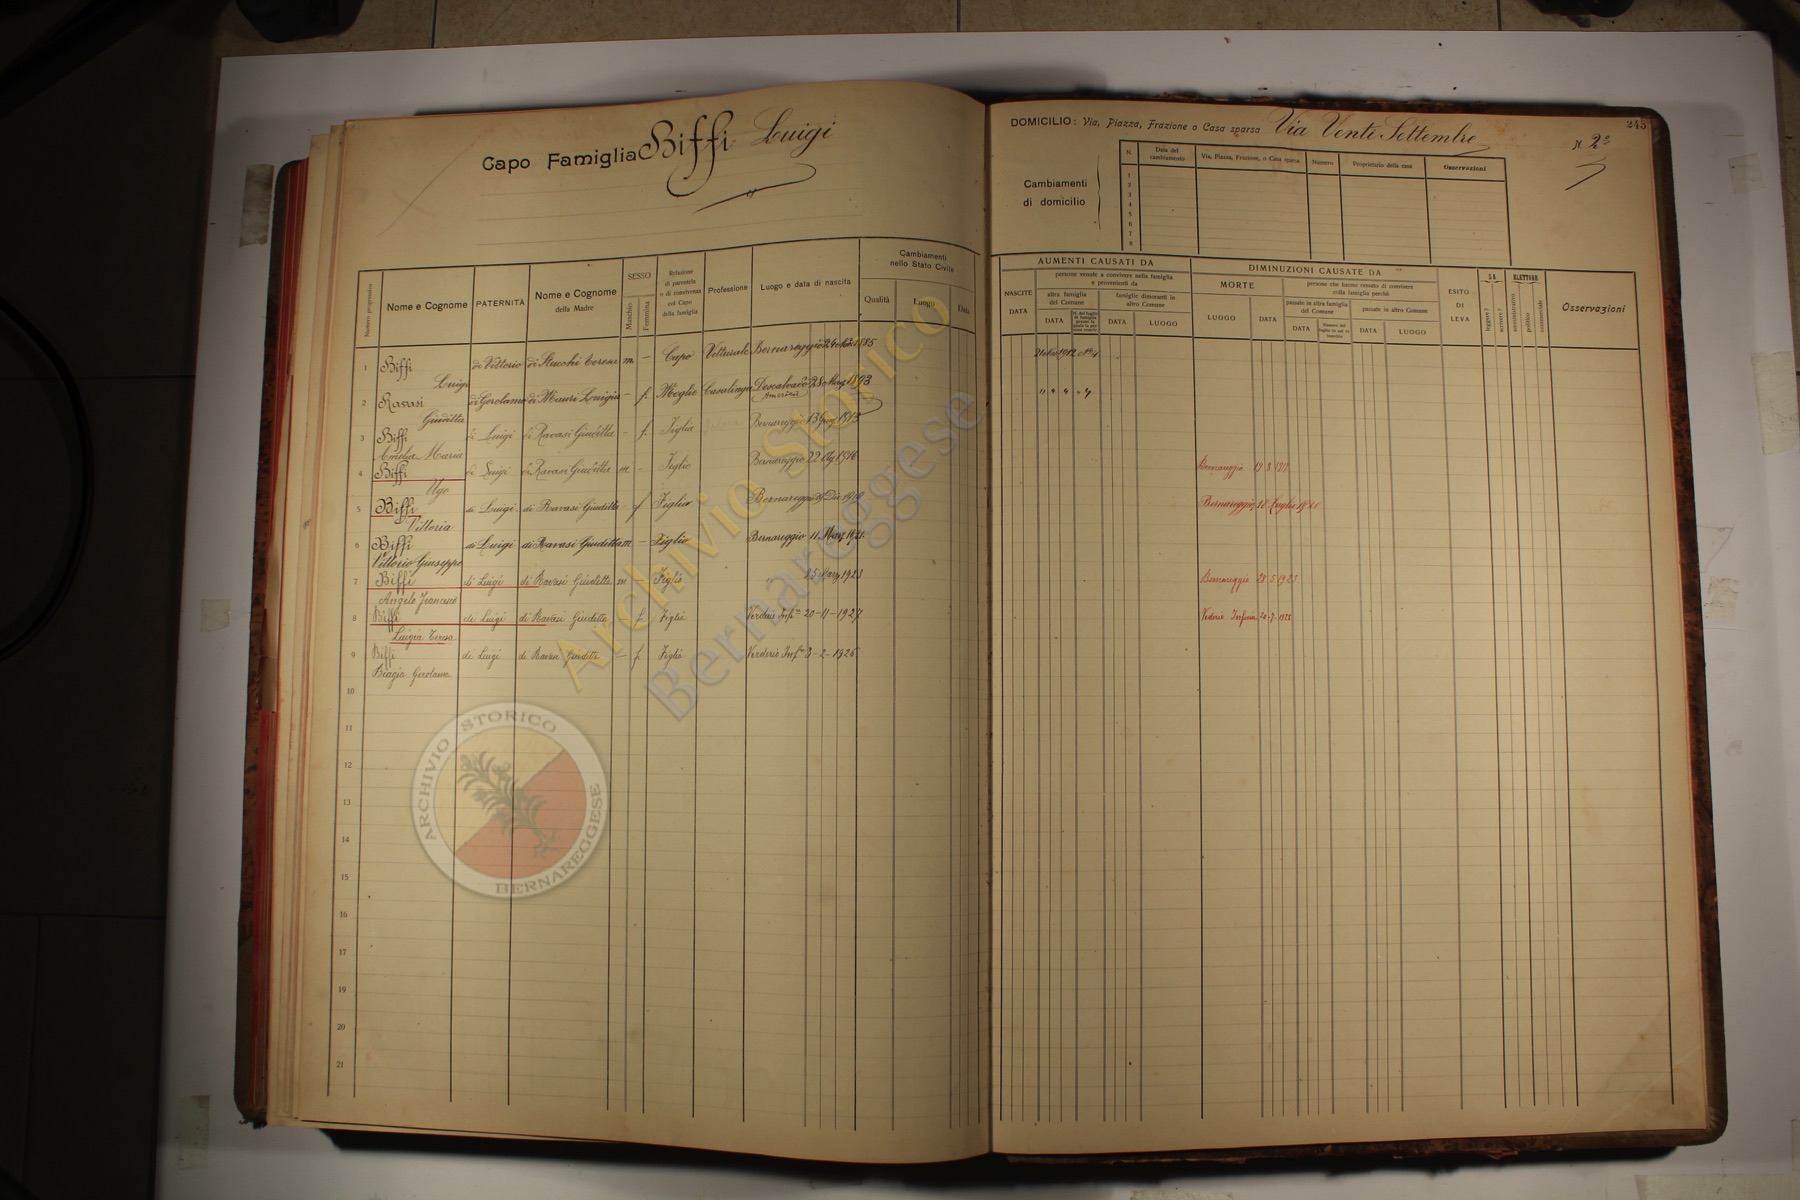 Capo Famiglia Biffi Luigi
Numero progressivo
Nome e Cognome
PATERNITÀ
Nome e Cognome
della Madre
SESSO
Maschio
Femmina
Relazione
di parentela
o di convivenza
col Capo
della famiglia
Professione
Luogo e data di nascita
Cambiamenti
nello Stato Civile
Qualità
Luogo
Data
1 Biffi di Vittorio di Stucchi m - Capo Bernareggio 1885
Luigi
2 Ravasi di Gerolamo di Mauri Luigia - f. Moglie Casalinga 1893
Giuditta America
3 Biffi di Luigi di Ravasi Giuditta - f. Figlia Bernareggio 1913
Amelia Maria
4 Biffi di Luigi di Ravasi Giuditta m - Figlio Bernareggio 22 1916
Ugo
5 Biffi di Luigi di Ravasi Giuditta - f Figlia Bernareggio Dic 1919
Vittoria
6 Biffi di Luigi di Ravasi Giuditta m - Figlio Bernareggio 11 1921
Vittorio Giuseppe
7 Biffi di Luigi di Ravasi Giuditta m Figlio 25 1923
Angelo Francesco
8 Biffi di Luigi di Ravasi Giuditta f. Figlia 20-11-1927
Luigia Teresa
9 Biffi di Luigi di Ravasi Giuditta - f. Figlia Verderio Inf 3-2-1926
Biagia Gerolama
10
11
12
13
14
15
16
17
18
19
20
21
ARCHIVIO STORICO
BERNAREGGESE
Archivio Storico
Bernareggese
245
DOMICILIO: Via, Piazza, Frazione o Casa sparsa Via Venti Settembre N 2
Cambiamenti
di domicilio
N.
Data del
cambiamento
Via, Piazza, Frazione, o Casa sparsa
Numero
Proprietario della casa
Osservazioni
1
2
3
4
5
6
7
8
AUMENTI CAUSATI DA
NASCITE
DATA
persone venute a convivere nella famiglia
e provenienti da
altra famiglia
del Comune
DATA
famiglie dimoranti in
altro Comune
DATA
LUOGO
DIMINUZIONI CAUSATE DA
MORTE
LUOGO
DATA
persone che hanno cessato di convivere
colla famiglia perchè
passate in altra famiglia
del Comune
DATA
passate in altro Comune
DATA
LUOGO
ESITO
DI
LEVA
SA
leggere?
scrivere?
ELETTORE
amministrativo
politico
commerciale
Osservazioni
1912
Bernareggio 19 8
Bernareggio Luglio
Bernareggio 28-5-1923
Verderio 1928